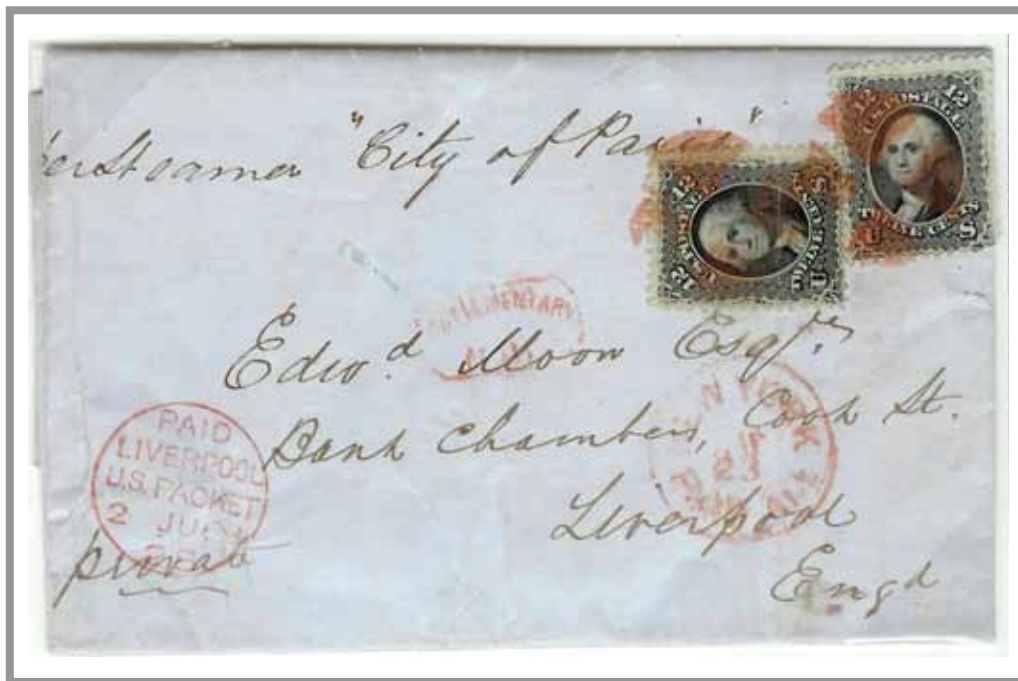 per Steamer "City of Paris"
12 12
U.S. POSTAGE
TWELVE CENTS
U S
12 12
U.S. POSTAGE
TWELVE CENTS
U S
SUPPLEMENTARY
Edwd Moon Esqre
Bank Chambers, Cook St.
Liverpool
Engd
NEW YORK
PAID
PAID
LIVERPOOL
U.S. PACKET
2 JUL
private